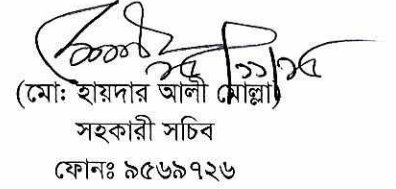 ১৫/১১/১৫
(মোঃ হায়দার আলী মোল্লা)
সহকারী সচিব
ফোনঃ ৯৫৬৯৭২৬